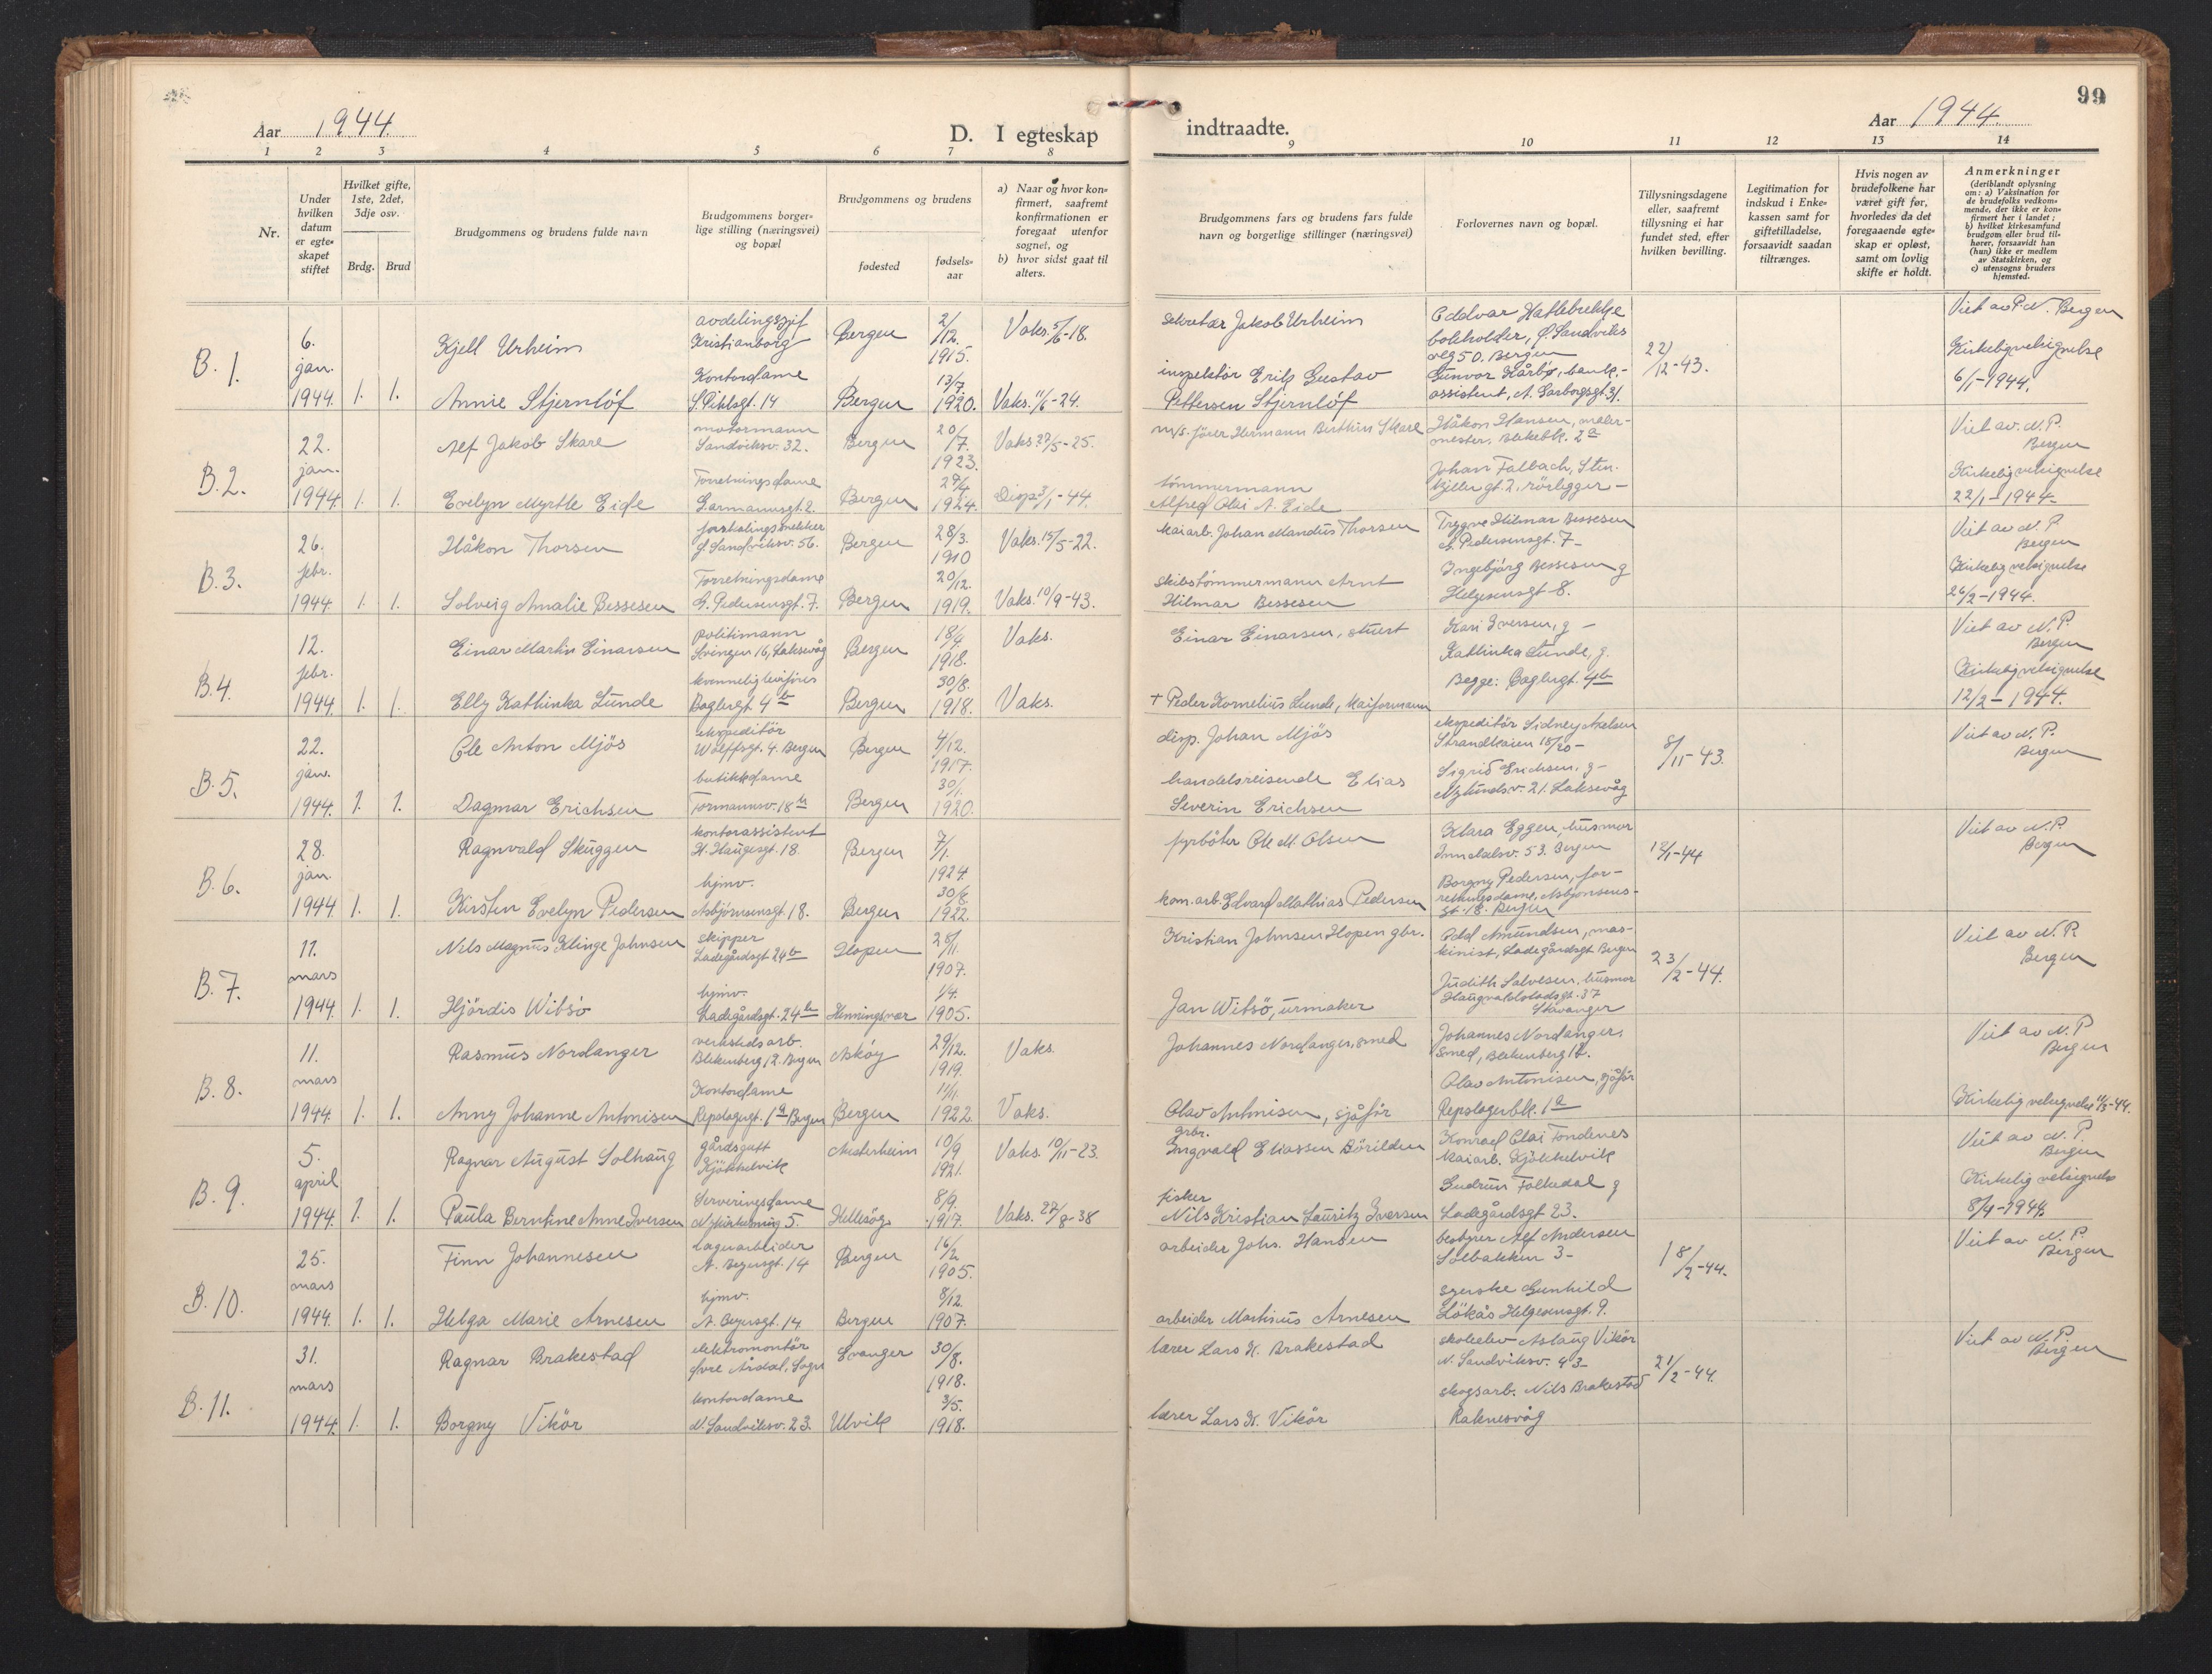 99
Aar 1944.
D. I egteskap
indtraadte.
Aar 1944.
1 2 3 4 5 6 7 8 9 10 11 12 13 14
Nr.
Under hvilken datum er egteskapet stiftet
Hvilket gifte, 1ste, 2det, 3dje osv.
Brdg. Brud
Brudgommens og brudens fulde navn
Brudgommens borgerlige stilling (næringsvei) og bopæl
Brudgommens og brudens
fødested
fødselsaar
a) Naar og hvor konfirmert, saafremt konfirmationen er foregaat utenfor sognet, og
b) hvor sidst gaat til alters.
Brudgommens fars og brudens fars fulde navn og borgerlige stillinger (næringsvei)
Forlovernes navn og bopæl.
Tillysningsdagene eller, saafremt tillysning ei har fundet sted, efter hvilken bevilling.
Legitimation for indskud i Enkekassen samt for giftetilladelse, forsaavidt saadan tiltrænges.
Hvis nogen av brudefolkene har været gift før, hvorledes da det foregaaende egteskap er opløst, samt om lovlig skifte er holdt.
Anmerkninger
(deriblandt oplysning om: a) Vaksination for de brudefolks vedkommende, der ikke er konfirmert her i landet; b) hvilket kirkesamfund brudgom eller brud tilhører, forsaavidt han (hun) ikke er medlem av Statskirken, og c) utensogns bruders hjemsted.
B. 1. 6. jan. 1944. 1. 1.
Kjell Urheim avdelingssjef Kristianborg Bergen 2/12. 1915. Vaks. 5/6-18. sekretær Jakob Urheim Oddvar Hatlebrekke bokholder, Ø. Sandviksveg 50. Bergen 22/12-43. Viet av P. N. Bergen
Annie Stjernlöf Kontordame S. Pihlsgt. 14 Bergen 13/7. 1920. Vaks. 11/6-24. inspektör Erik Gustav Pettersen Stjernlöf Gunvor Kårbø, bank-assistent, A. Garborgsgt. 31. Kirkelig velsignelse 6/1-1944.
B. 2. 22. jan. 1944. 1. 1.
Alf Jakob Skare motormann Sandviksv. 32. Bergen 20/7. 1923. Vaks. 27/5-25. m/s. fører Hermann Berthin Skare Håkon Hansen, malermester, Blekebk. 2a Viet av. N. P. Bergen
Evelyn Myrtle Eide Forretningsdame Garmannsgt. 2. Bergen 29/4 1924. Disp. 3/1-44. tömmermann Alfred Olai A. Eide Johan Falbach, Stenkjellergt. 2, rörlegger - Kirkelig velsignelse 22/1-1944.
B. 3. 26. febr. 1944. 1. 1.
Håkon Thorsen Ø. Sandviksv. 56. Bergen 28/3. 1910 Vaks. 15/5-22. kaiarb. Johan Mandius Thorsen Trygve Hilmar Bessesen A. Pedersensgt. 7- Viet av N. P. Bergen
Solveig Amalie Bessesen Forretningsdame A. Pedersensgt. 7. Bergen 20/12. 1919. Vaks. 10/9-43. skibstömmermann Arnt Hilmar Bessesen Ingebjörg Bessesen g Helgesensgt 8. Kirkelig velsignelse 26/2-1944.
B. 4. 12. febr. 1944. 1. 1.
Einar Martin Einarsen politimann Svingen 16, Laksevåg Bergen 18/4 1918. Vaks. Einar Einarsen, stuert Kari Iversen, g - Viet av N. P. Bergen
Elly Kathinka Lunde Baglergt 4b Bergen 30/8. 1918. Vaks. + Peder Kornelius Lunde, kaiformann Kathinka Lunde, g. Begge: Baglergt. 4b Kirkelig velsignelse 12/2-1944.
B. 5. 22. jan. 1944. 1. 1.
Ole Anton Mjös ekspeditör Wolffsgt. 4. Bergen Bergen 4/12. 1917. disp. Johan Mjös ekspeditör Sidney Axelsen Strandkaien 18/20- 8/11-43. Viet av N. P. Bergen
Dagmar Erichsen butikkdame Formannsv. 18b Bergen 30/1. 1920. handelsreisende Elias Severin Erichsen Sigrid Erichsen, g- Nylundsv. 21. Laksevåg
B. 6. 28. jan. 1944. 1. 1.
Ragnvald Skuggen kontorassistent H. Haugesgt. 18. Bergen 7/1. 1924. fyrböter Ole M. Olsen Klara Eggen, husmor 53. Bergen 12/1-44 Viet av N. P. Bergen
Kirsten Evelyn Pedersen hjmv. Asbjörnsensgt. 18. Bergen 30/8. 1922. kom. arb. Edvard Mathias Pedersen Borgny Pedersen, forretningsdame, Asbjörnsensgt. 18. Bergen
B. 7. 11. mars 1944. 1. 1.
Nils Magnus Klinge Johnsen skipper Ladegårdsgt 24b Hopen 28/11 1907. Kristian Johnsen Hopen gbr. Odd Amundsen, maskinist, Ladegårdsgt Bergen 23/2-44. Viet av N. P. Bergen
Hjördis Wibsö hjmv. Ladegårdsgt. 24b Henningsvær 1/4. 1905. Jan Wibsö, urmaker Judith Salvesen, husmor Haugvaldstadsgt. 37 Stavanger
B. 8. 11. mars 1944. 1. 1.
Rasmus Nordanger verkstedsarb. Blekenberg 12. Bergen Askøy 29/12. 1919. Vaks. Johannes Nordanger, smed Johannes Nordanger, smed, Blekenberg 12. Viet av N. P Bergen
Anny Johanne Antonisen Kontordame Repslagergt. 1a Bergen Bergen 11/11. 1922. Vaks. Olav Antonisen, sjåför Olav Antonisen, sjåför Repslagerbk. 1a Kirkelig velsignelse 11/3-44.
B. 9. 5. april 1944. 1. 1.
Ragnar August Solhaug gårdsgutt Kjökkelvik Austerheim 10/9 1921. Vaks. 10/11-23. grbr. Ingvald Eliassen Börilden Konrad Olai Fondenes kaiarb. Kjökkelvik Viet av N. P. Bergen
Paula Berntine Anne Iversen Serveringsdame 5. Hellesöy 8/9. 1917. Vaks. 27/8-38 fisker Nils Kristian Lauritz Iversen Gudrun Folkedal g Ladegårdsgt 23. Kirkelig velsignelse 8/4-1944.
B. 10. 25. mars 1944. 1. 1.
Finn Johannesen lagerarbeider A. Beyersgt. 14 Bergen 16/2 1905. arbeider Johs. Hansen bestyrer Alf Andersen Solbakken 3- 18/2-44. Viet av N. P. Bergen
Helga Marie Arnesen hjmv. A. Beyersgt. 14 Bergen 8/12. 1907. arbeider Martinius Arnesen syerske Gunhild Lökås Helgesensgt. 9.
B. 11. 31. mars 1944. 1. 1.
Ragnar Brakestad elektromontör Øvre Årdal, Sogn Evanger 30/8. 1918. lærer Lars K. Brakestad skoleelev Aslaug Vikör N. Sandviksv. 43- 21/2-44. Viet av N. P. Bergen
Borgny Vikör kontordame N. Sandviksv. 23. Ulvik 3/5. 1918. lærer Lars K. Vikör skogsarb. Nils Brakestad Raknesvåg